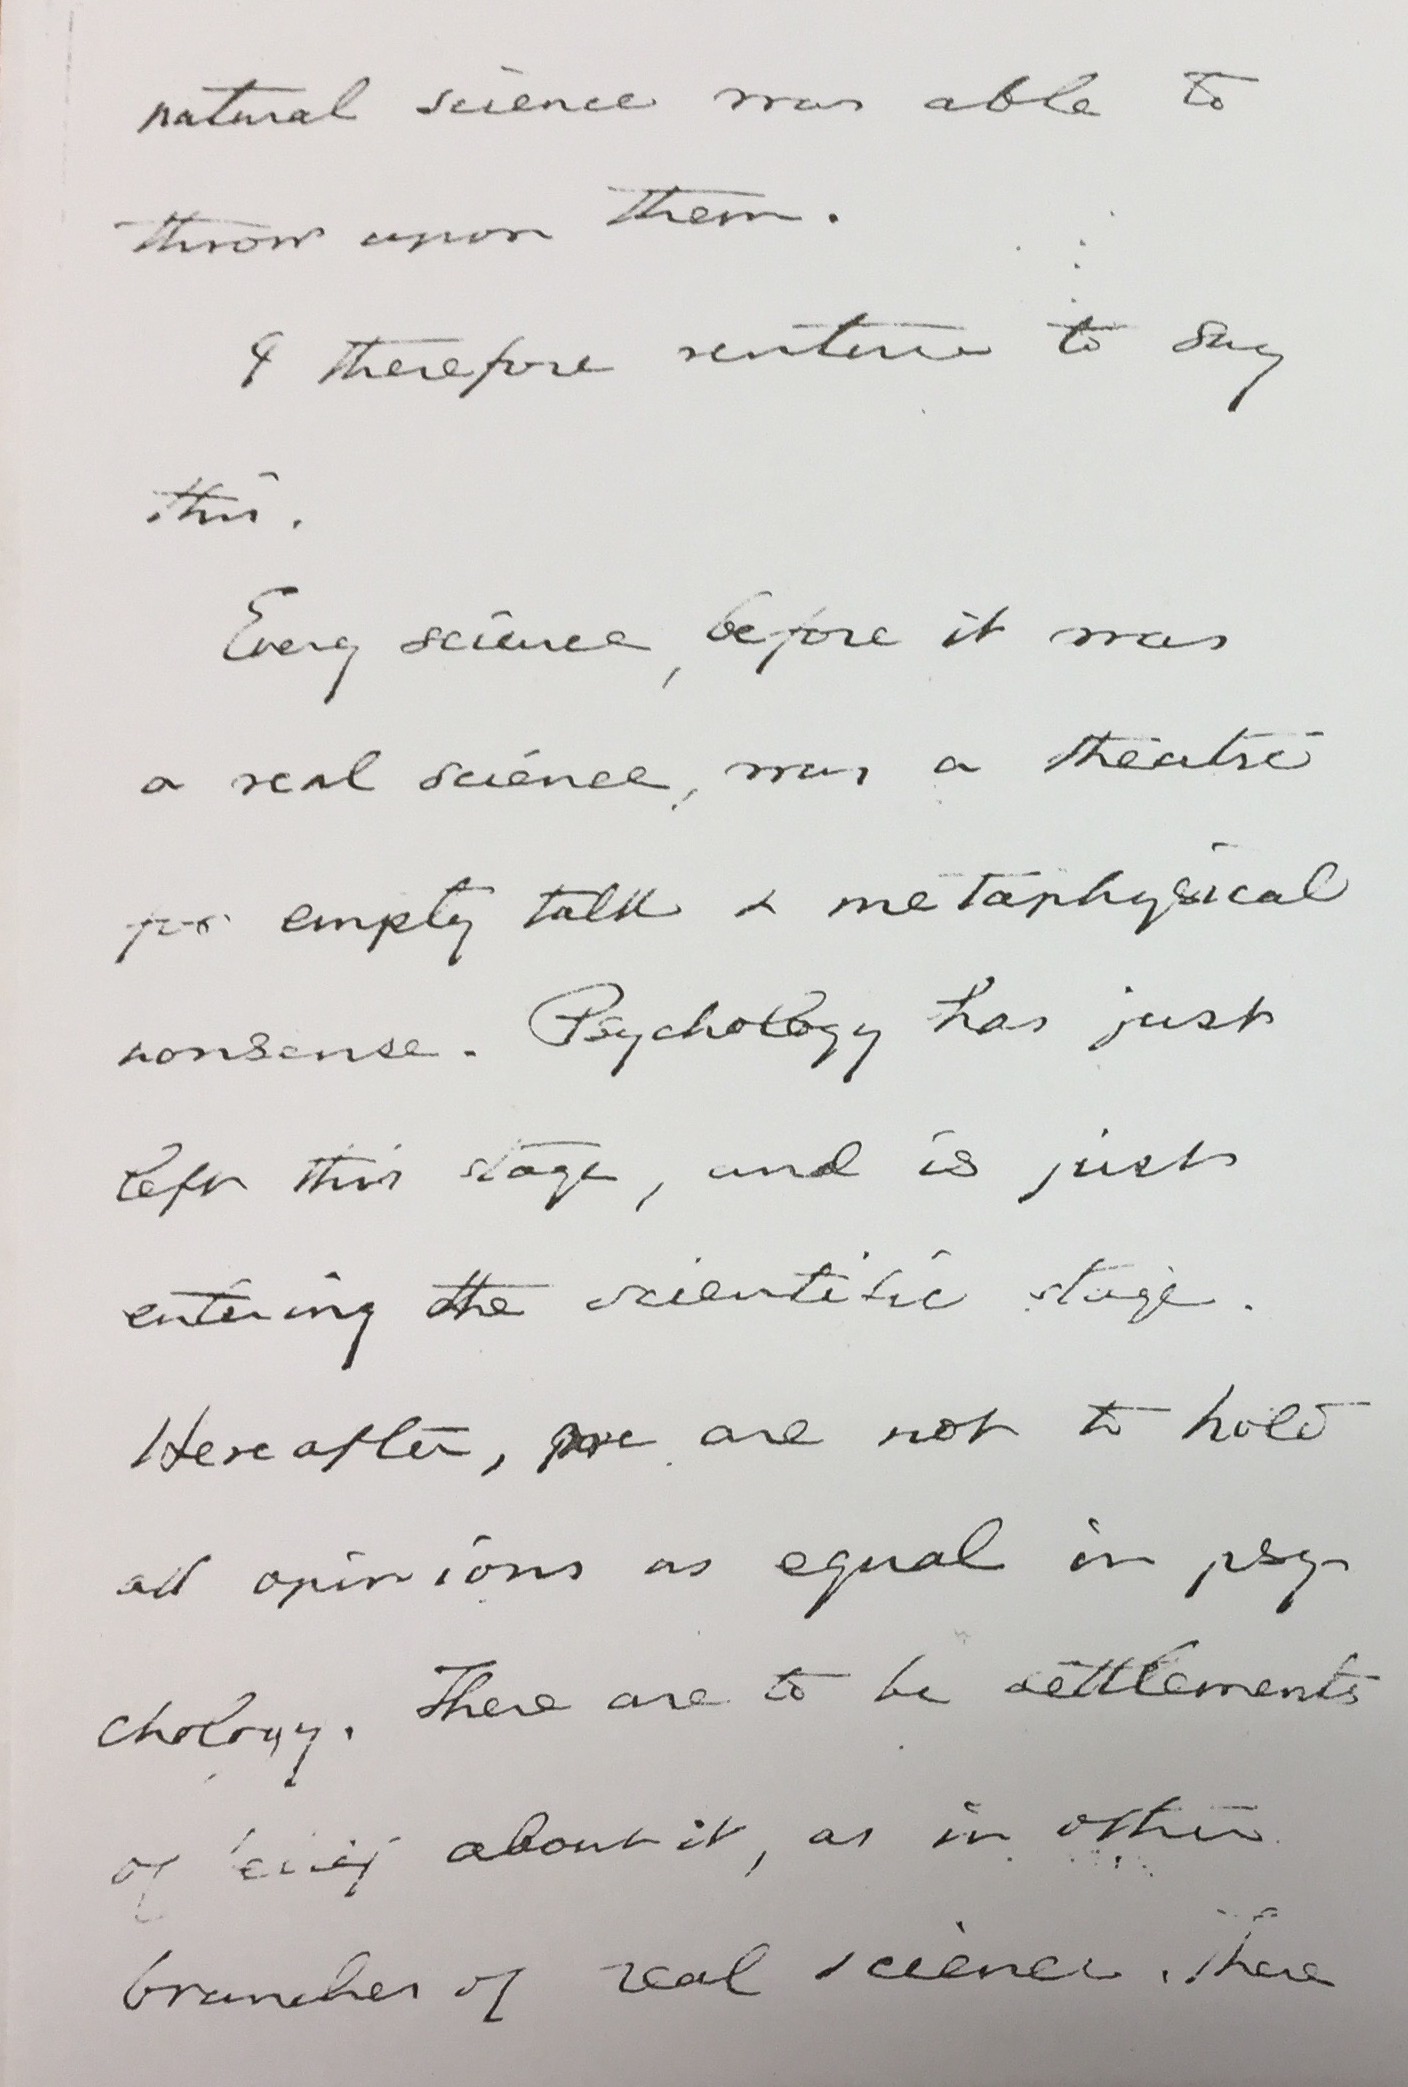 natural science was able to
throw upon them.
I therefore venture to say
this.
Every science, before it was
a real science, was a theatre
for empty talk & metaphysical
nonsense. Psychology has just
left this stage, and is just
entering the scientific stage.
Hereafter, we are not to hold
all opinions as equal in psy-
chology. There are to be settlements
of belief about it, as in other
branches of real science. There